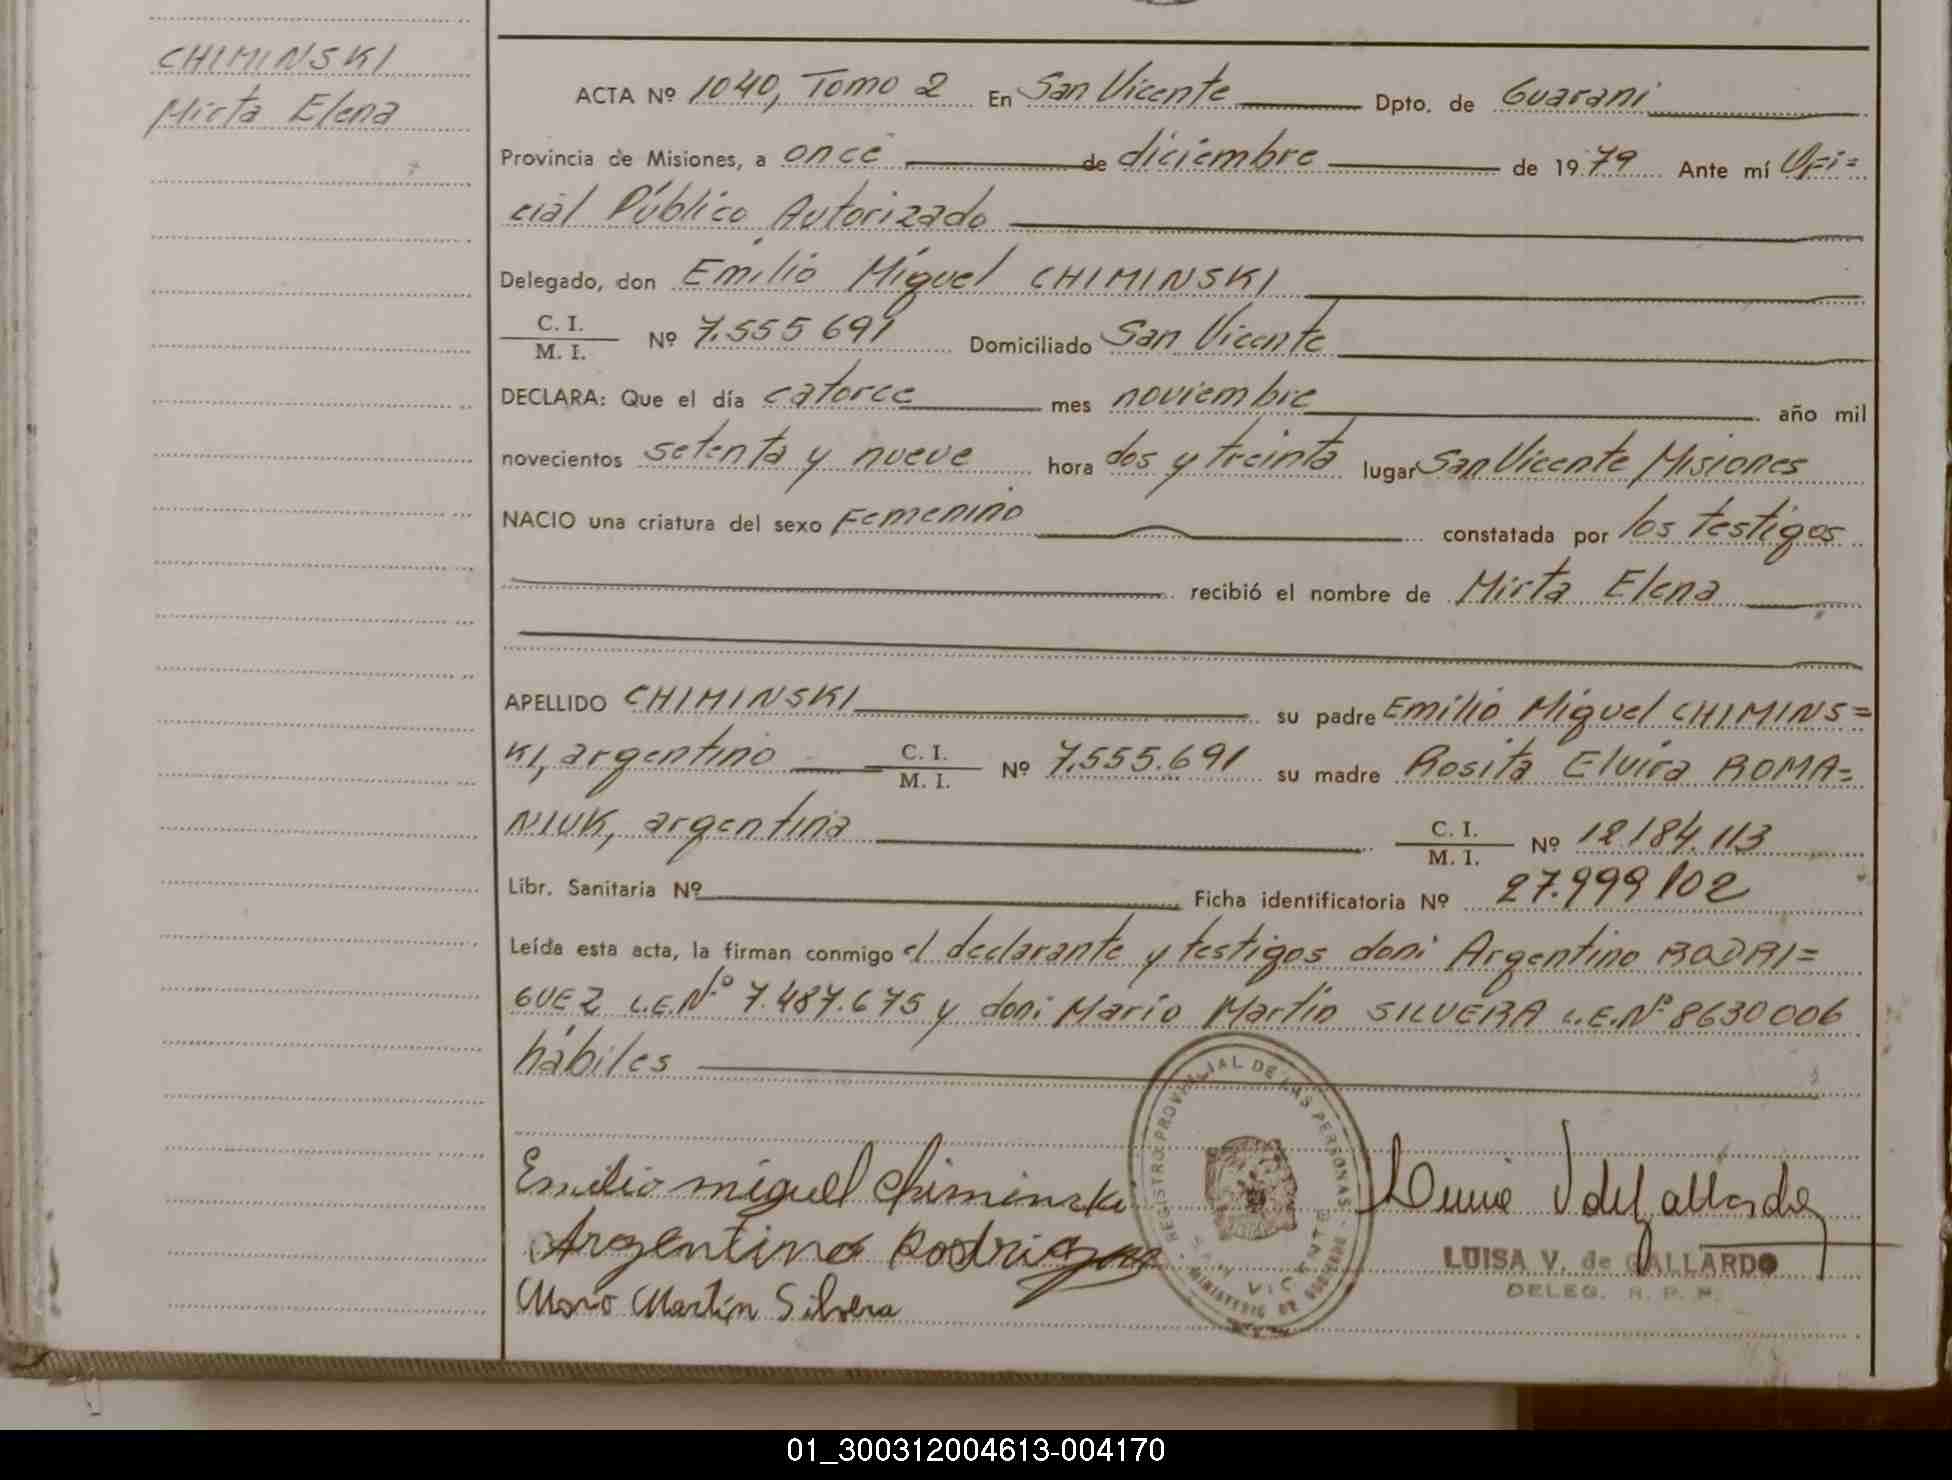 CHIMINSKI
Mirta Elena
ACTA Nº 1040, Tomo 2 En San Vicente Dpto. de Guarani
Provincia de Misiones, a once de diciembre de 1979 Ante mí Ofi=
cial Público Autorizado
Delegado, don Emilio Miguel CHIMINSKI
C. I.
M. I. Nº 7.555 691 Domiciliado San Vicente
DECLARA: Que el día catorce mes noviembre año mil
novecientos setenta y nueve hora dos y treinta lugar San Vicente Misiones
NACIO una criatura del sexo Femenino constatada por los testigos
recibió el nombre de Mirta Elena
APELLIDO CHIMINSKI su padre Emilio Miguel CHIMINS=
KI, argentino C. I. M. I. Nº 7.555.691 su madre Rosita Elvira ROMA=
NIUK, argentina C. I. M. I. Nº 12.184.113
Libr. Sanitaria Nº Ficha identificatoria Nº 27.999.102
Leída esta acta, la firman conmigo el declarante y testigos don: Argentino RODRI=
GUEZ L.E.Nº 7.487.675 y don: Mario Martin SILVERA L.E.Nº 8630006
hábiles
Emilio miguel Chiminski
Argentino Rodriguez
Mario Martin Silvera
REGISTRO PROVINCIAL DE LAS PERSONAS
SAN VICENTE
MINISTERIO DE GOBIERNO
LUISA V. de GALLARDO
DELEG. R. P. P.
01_300312004613-004170